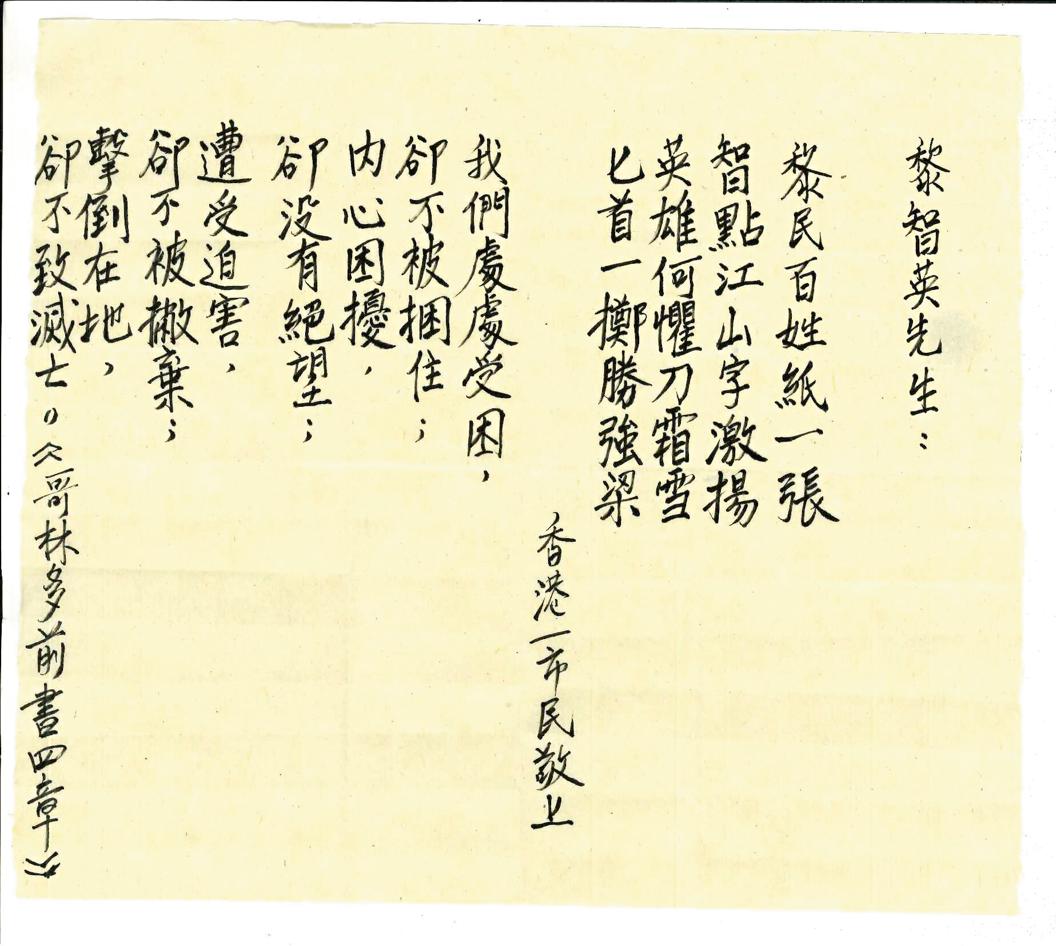 黎智英先生：
黎民百姓紙一張
智點江山字激揚
英雄何懼刀霜雪
匕首一擲勝強梁
香港一市民敬上
我們處處受困，
卻不被捆住；
内心困擾，
卻没有絕望；
遭受迫害，
卻不被撇棄；
擊倒在地，
卻不致滅亡。《哥林多前書四章》